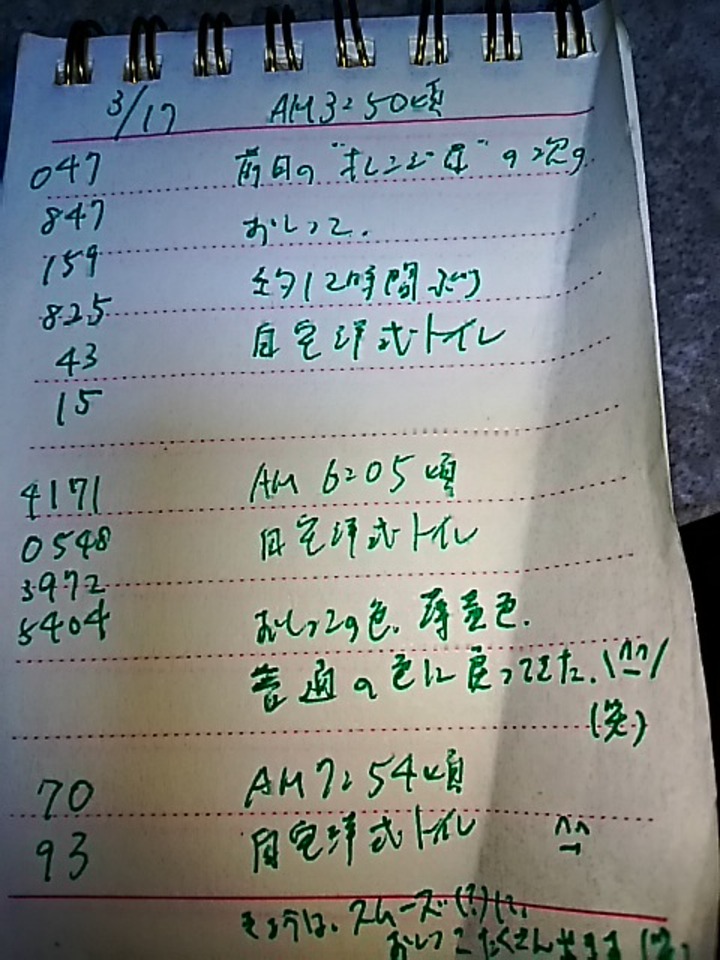 3/17 AM3:50頃
047 前日の"オレンジ尿"の次の
847 おしっこ.
159 約12時間ぶり
825 自宅洋式トイレ
43
15
4171 AM 6:05頃
0548 自宅洋式トイレ
3972
5404 おしっこの色、薄黄色.
普通の色に戻ってきた.\^^/
(笑)
70 AM7:54頃
93 自宅洋式トイレ ^^
きょうは、スムーズ(?)に、
おしっこたくさん出ます(笑)